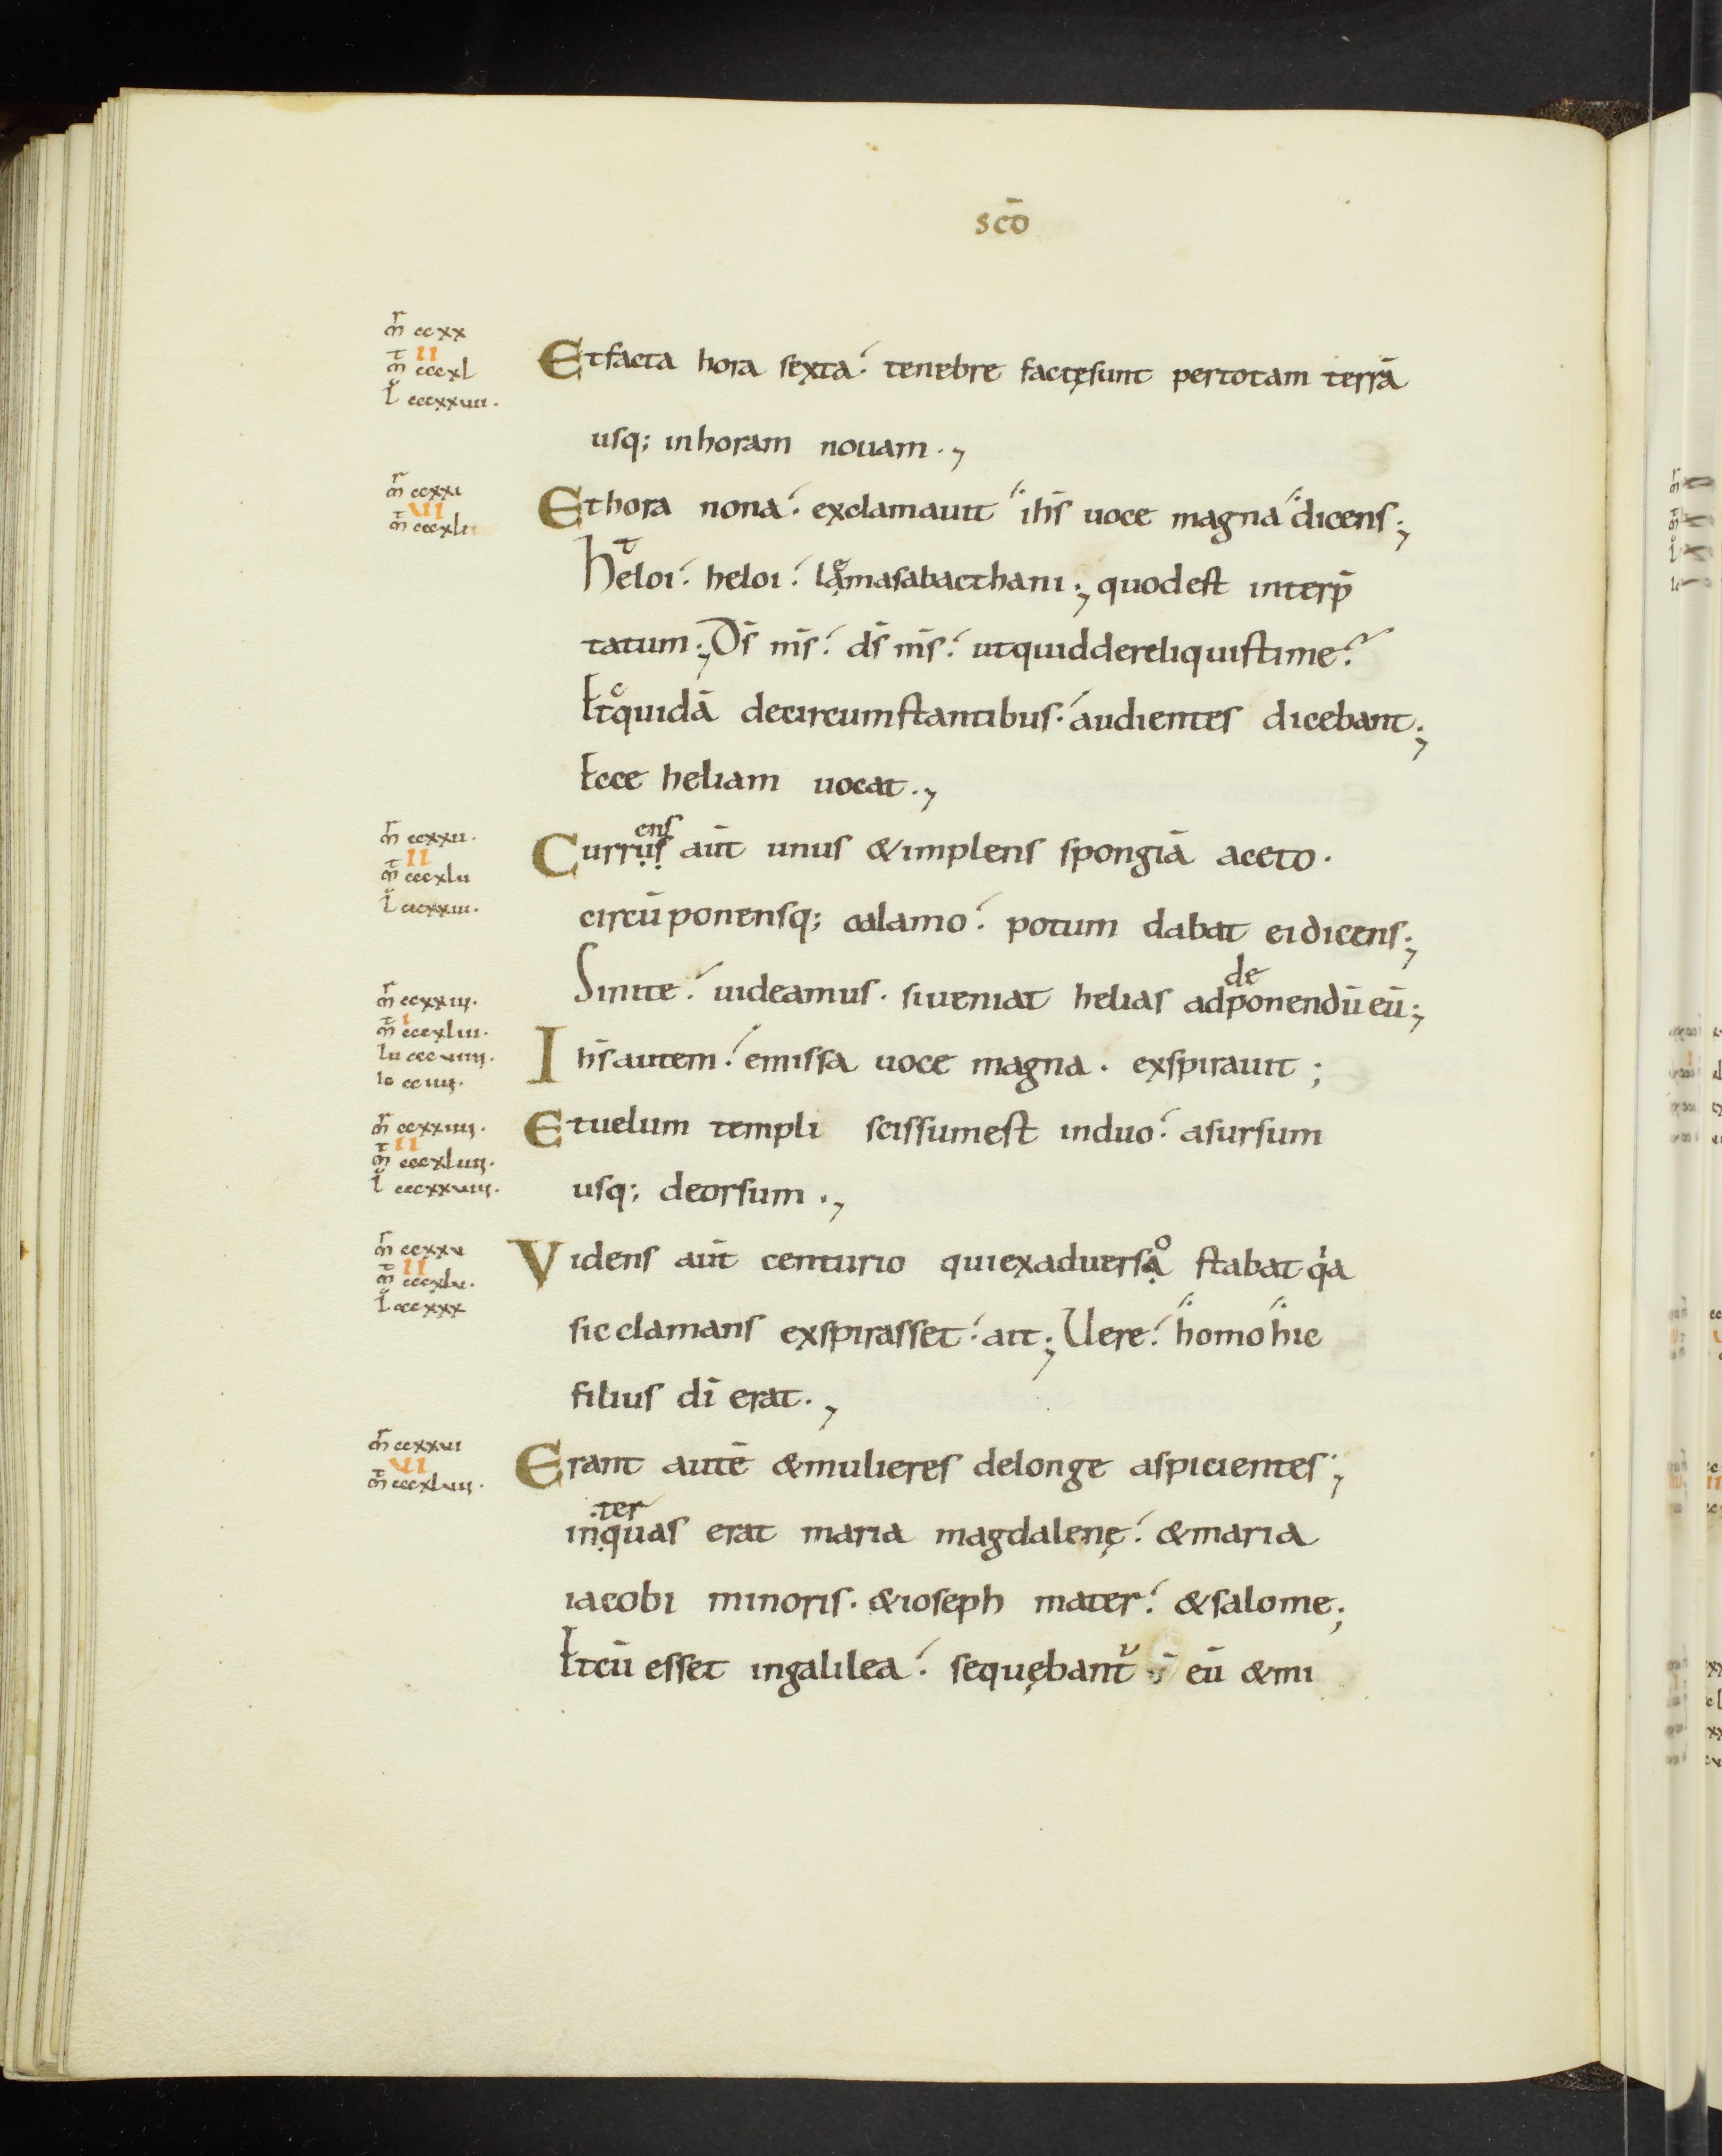 scō
mr̄ ccxx
II
mt̄ cccxl
l cccxxviii.
Etfacta hora sexta. tenebre factęsunt pertotam terrā
usq; inhoram nouam.,
mr̄ ccxxi
VI
mt̄ cccxli
Ethora nona. exclamauit ihs̄ uoce magna dicens;
heloi. heloi. lamasabacthani; quodest interp̄
tatum; Ds̄ ms̄. ds̄ ms̄. utquiddereliquistime?
Etquidā decircumstantibus. audientes dicebant;
Ecce heliam uocat.,
mr̄ ccxxii.
II
mt̄ cccxlii
l cccxxiii.
ens
Currus aūt unus &implens spongiā aceto.
circūponensq; calamo. potum dabat eidicens;
de
Sinite. uideamus. siueniat helias adponendū eū;
mr̄ ccxxiii.
I
mt̄ cccxliii.
lu cccviiii.
io cciiii.
Ihs̄ autem. emissa uoce magna. exspirauit;
mr̄ ccxxiiii.
II
mt̄ cccxliiii.
l cccxxviiii.
Etuelum templi scissumest induo. asursum
usq; deorsum.,
mr̄ ccxxv
II
mt̄ cccxlv.
l cccxxx
o
Videns aūt centurio quiexaduersa stabat qia
sicclamans exspirasset. ait; Uere. homo hic
filius dī erat.,
mr̄ ccxxvi
VI
mt̄ cccxlviii.
Erant autē &mulieres delonge aspicientes;
ter
inquas erat maria magdalenę. &maria
iacobi minoris. &ioseph mater. &salome;
Etcū esset ingalilea. sequębant eū &mi